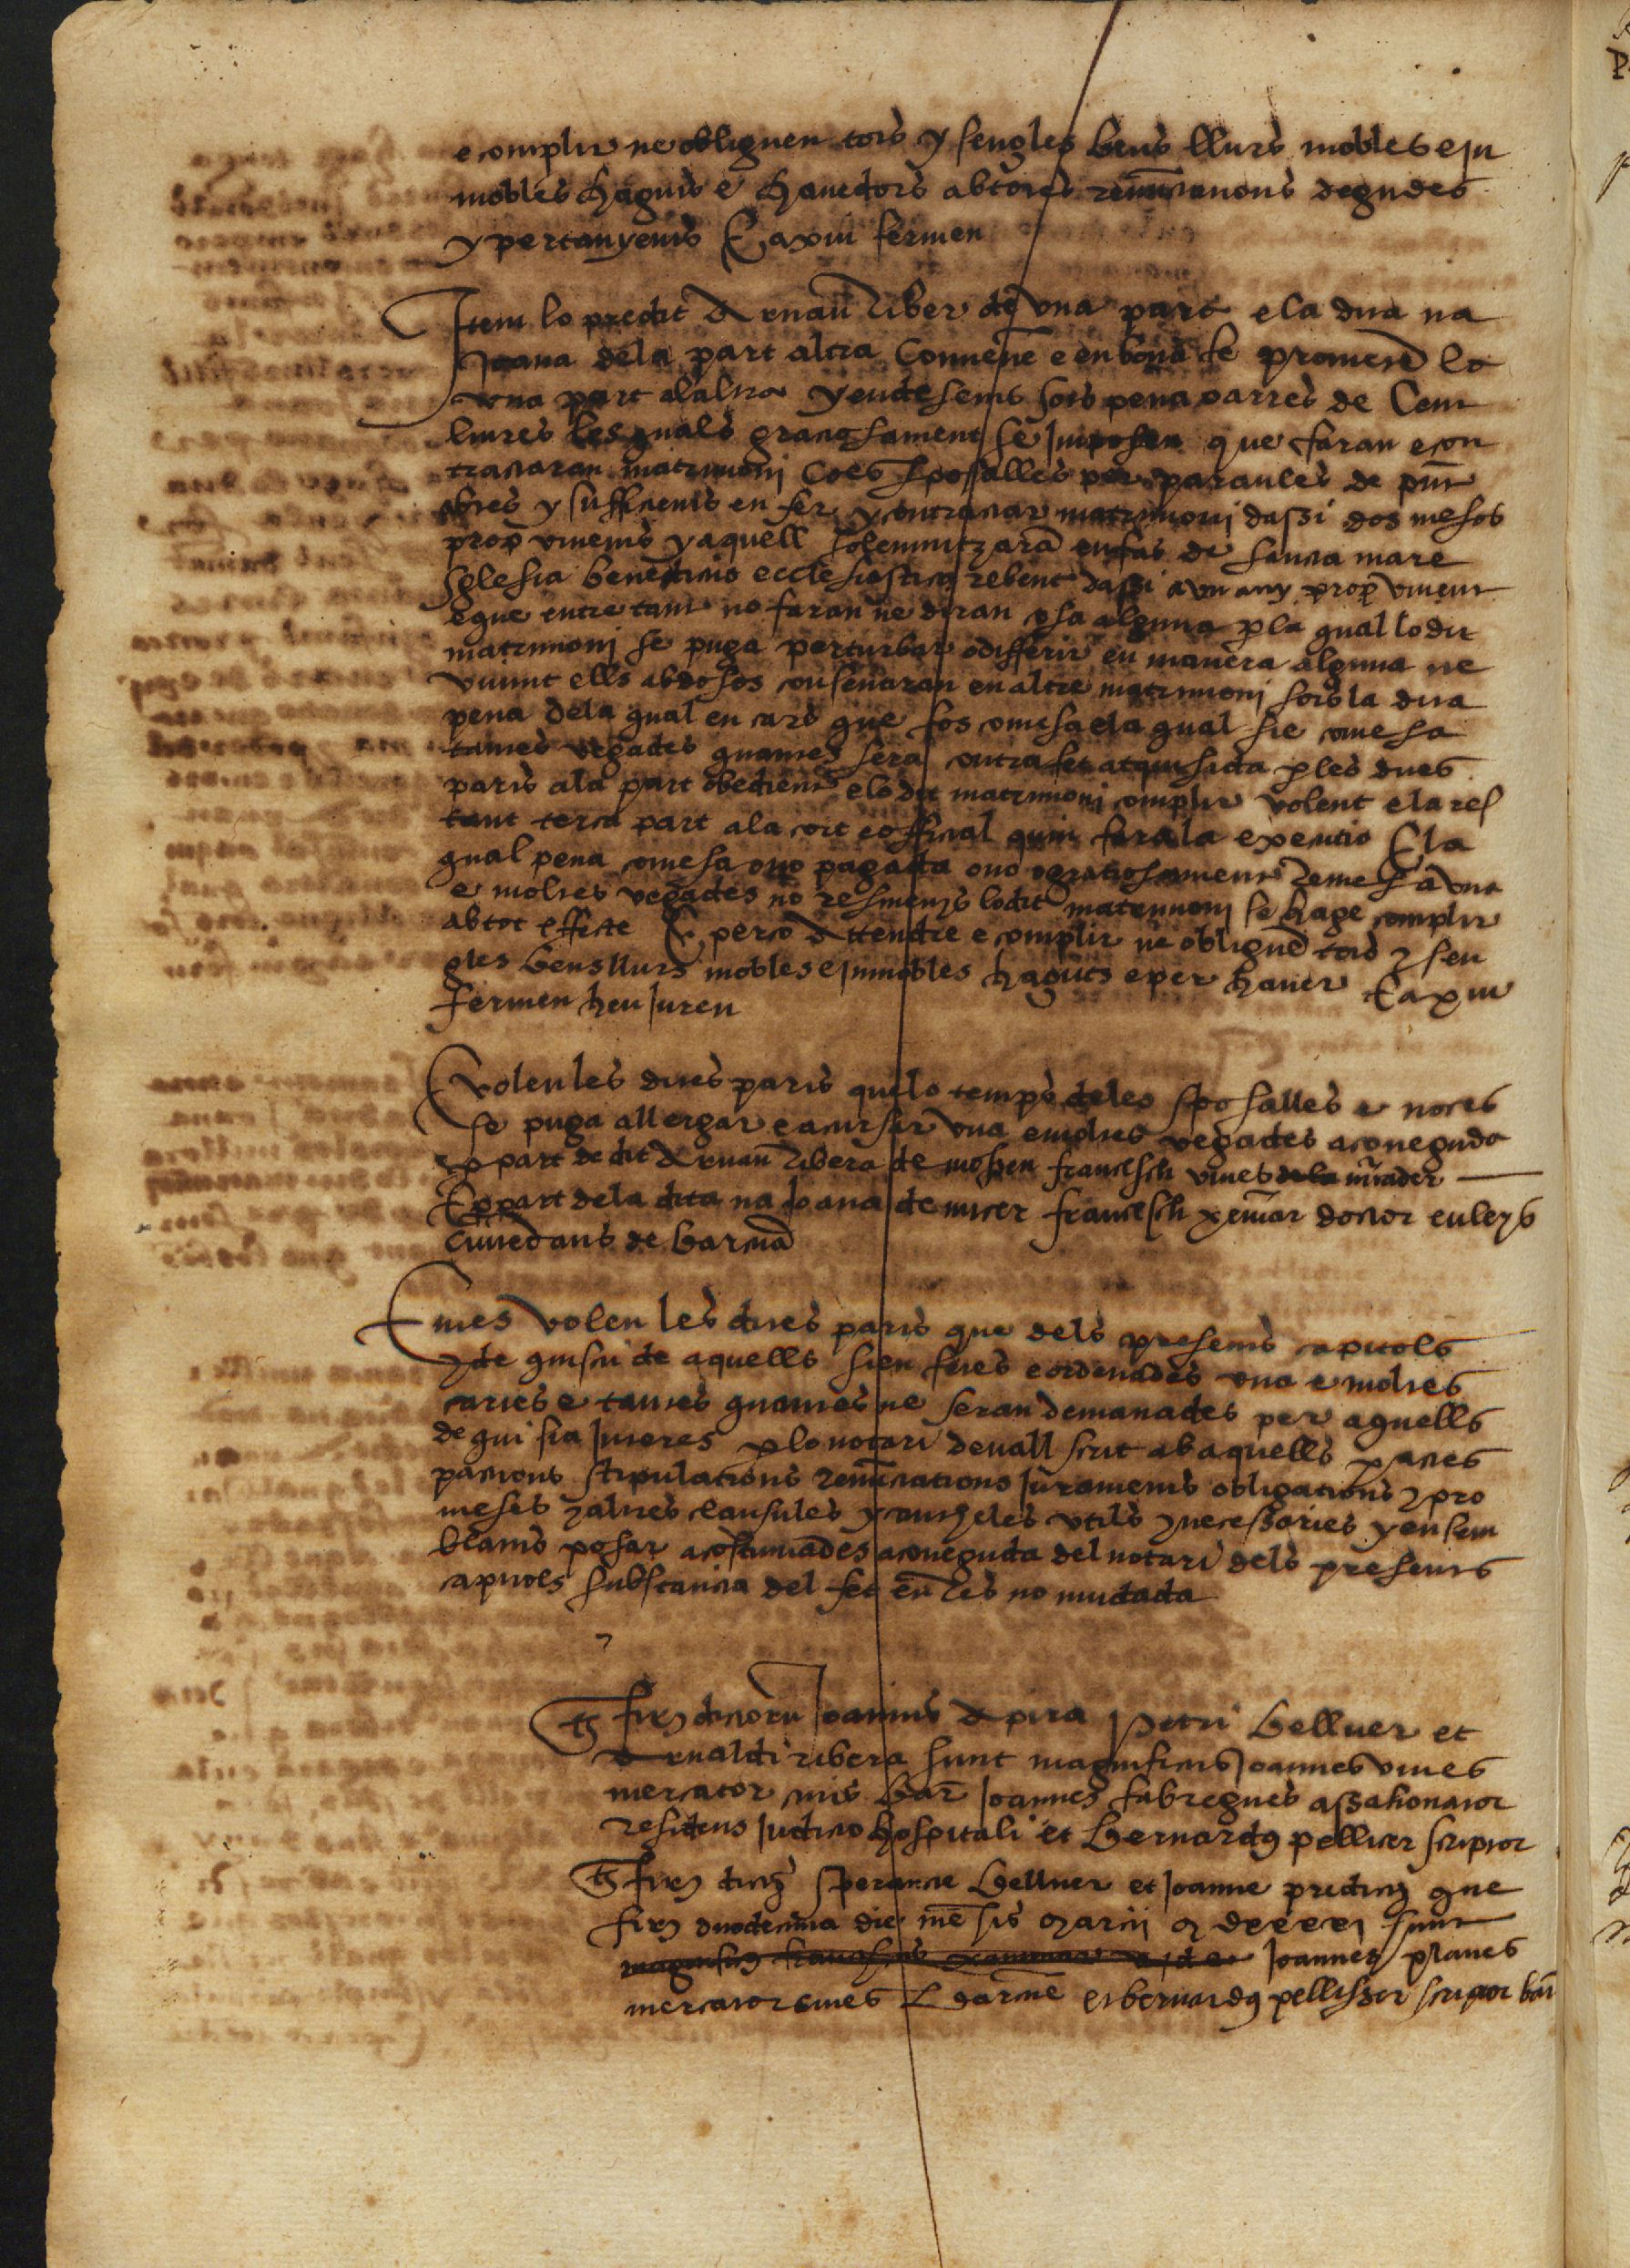 e complir ne obliguen tots y sengles bens llurs mobles e in
mobles haguts e havedors ab totes renunciations degudes
y pertanyents E axin fermen
Item lo predit Arnau Riber de una part e la dita na
Joana dela part altra Convene e en bona fe prometē la
una part alaltra y endesemps sots pena d arres de Cent
liures les quals graciosament se Imposen que faran e con
tractaran matrimoni Coes sposalles per paraules de pn̄t
abtes y sufficients en fer y contractar matrimoni dassi dos mesos
prop̄ vinents y aquell solemnitzarā en fas de sancta mare
sglesia benedictio ecclesiastica rebent dassi a un any prop̄ vinent
e que entretant no faran ne diran cosa alguna p la qual lo dit
matrimoni se puga perturbar o differir en manera alguna ne
vivint ells abdosos consentiran en altre matrimoni sots la dita
pena dela qual en cars que fos comesa ela qual sie comesa
tantes vegades quantes sera contrafet atquisida p les dues
parts ala part obedient elo dit matrimoni complir volent e la res
tant terca part ala cort e official quin fara la exequtio E la
qual pena comesa o no pagada o no o graciosament Remesa una
e moltes vegades no resmenys lo dit matrimoni se hage complir
ab tot effecte E perço Attendre e complir ne obliguē tots y sen
gles bens llurs mobles e inmobles haguts e per haver E axin
fermen heu juren
E volen les dites parts quelo temps deles sposalles e noces
se puga allergar e acursar una e moltes vegades a coneguda
p part de dit Arnau Ribera de mossen francesch vines dela mr̄cader
E p part dela dita na Joana de micer francesch xem̄ar doctor en leys
Ciutedans de barcnā
E mes volen les dites parts que dels presents capitols
y de quiscu de aquells sien fetes e ordenades una e moltes
cartes e tantes quantes ne seran demanades per aquells
de qui sia Interes p lo notari devall scrit ab aquells pactes
pactions stipulations Renūciations Juraments obligations y pro
meses y altres clausules y cautheles utils y necessaries y en sem
blants posar acostumades a coneguda del notari dels presents
capitols substancia del fet en Res no mudada
Ts firẹ dictorū Joannis Apira Petri Bellver et
Arnaldi ribera sunt magnificus Joannes vines
mercator civis Bar̄ Joannes fabregues assahonator
residens Judicio hospitali et Bernardꝰ pellicer scriptor
Ts firẹ dictẹ sperancie Bellver et Joanne predictẹ que
firẹ duodecima die mēsis Marcii M Dxxxxi sunt
Joannes planes
mercator cives Barcīne et bernardꝰ pellisser scriptor bar̄